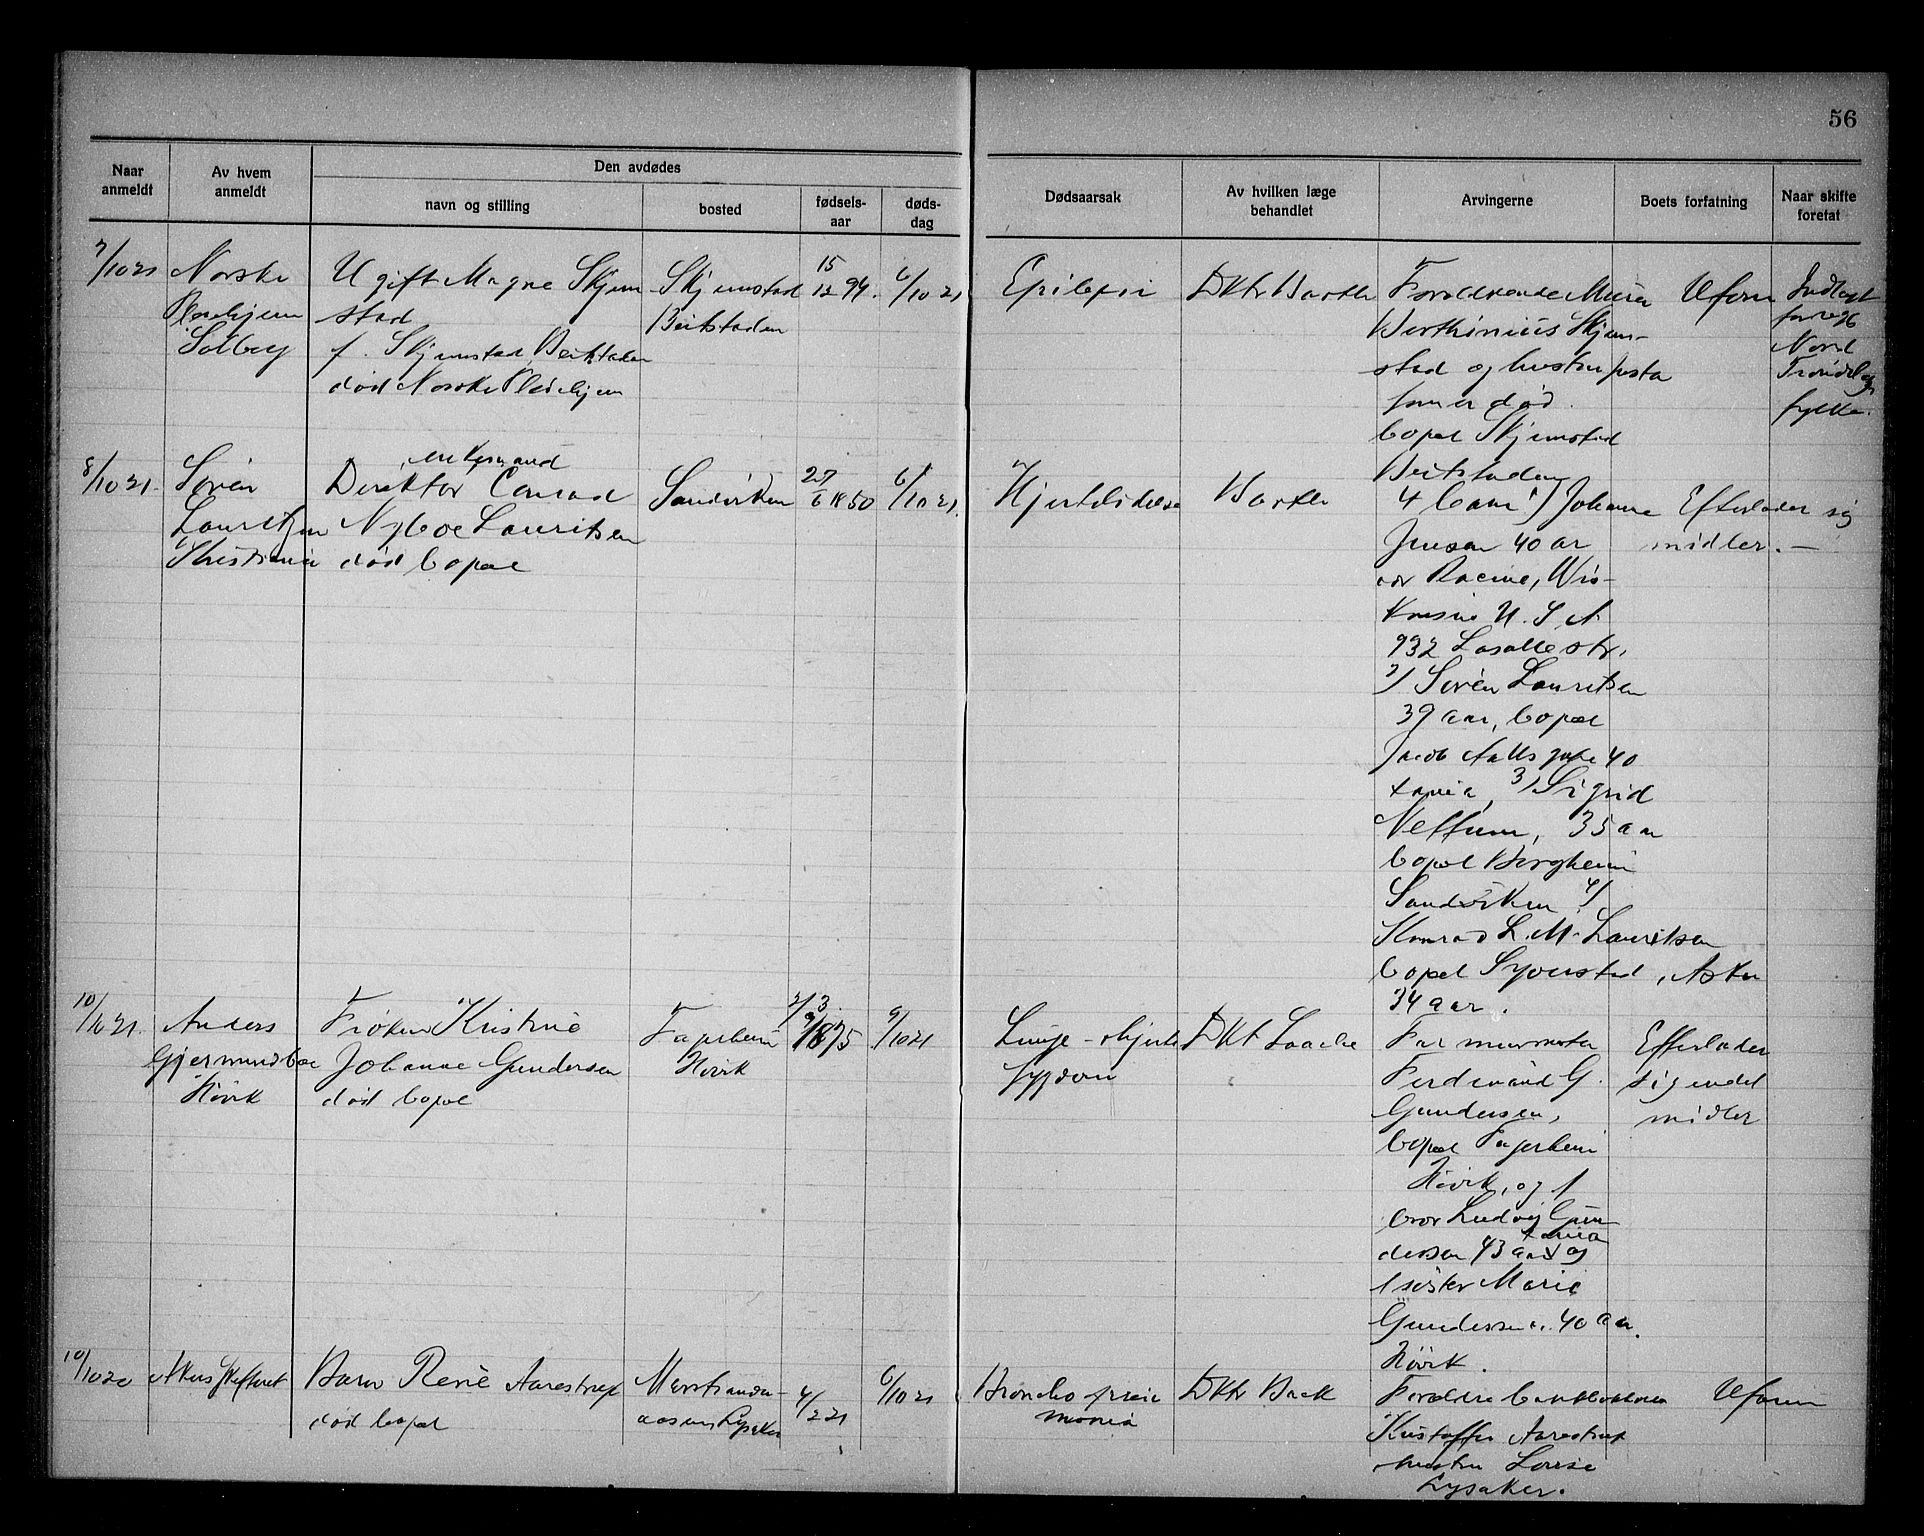 56
Naar anmeldt
Av hvem anmeldt
Den avdødes
navn og stilling
bosted
fødselsaar
dødsdag
Dødsaarsak
Av hvilken læge behandlet
Arvingerne
Boets forfatning
Naar skifte foretat
7/10 21
Norske
Pleiehjem
Solberg
Ugift Magne Skjem
stad
f. Skjemstad, Beitstaden
død Norske Pleiehjem
Skjemstad
Beitstaden
15
12 94.
6/10 21
Epilepsi
Dktr Barth
Forældrene
Berthinius Skjem-
stad og hustru
som er død.
bopæl Skjemstad
Beitstaden
Uform
Indlagt
Nord
Trøndelags
fylke.
8/10 21.
Sören
Lauritzen
Kristiania
enkemand
Direktør Conrad
Nyboe Lauritsen
død bopæl
Sandviken
27
6 1850
6/10 21.
Hjertelidelse
Barth
4 barn 1) Johanne
Jensen 40 aar
adr Racine, Wis-
konsin U. S. A
932 Lasalle str.
2/ Sören Lauritsen
39 aar, bopæl
Jacob Aalls gate 40
xania, 3/ Sigrid
35 aar
bopæl Bergheim
Sandviken 4/
Konrad L. M. Lauritsen
bopæl Syverstad, Asker
34 aar.
Efterlader sig
midler. —
10/10 21.
Anders
Gjermundboe
Høvik
Frøken Kristine
Johanne Gundersen
død bopæl
Fagerheim
Høvik
9/10 21
Lunge- o hjerte
sygdom
Dkt Laache
Far murmester
Ferdinand G.
Gundersen,
bopæl Fagerheim
Høvik, og 1
bror Ludvig Gun
xania
dersen 43 aar og
1 søster Marie
Gundersen. 40 aar.
Høvik.
Efterlader
sig endel
midler
10/10 20
Akers Skifteret
Barn René Aarestrup
død bopæl
Lysaker
4/2 21
6/10 21
Broncho pneu
monia
Dktr Back
Forældre
Kristoffer Aarestrup
hustru Louise
Lysaker.
Uform